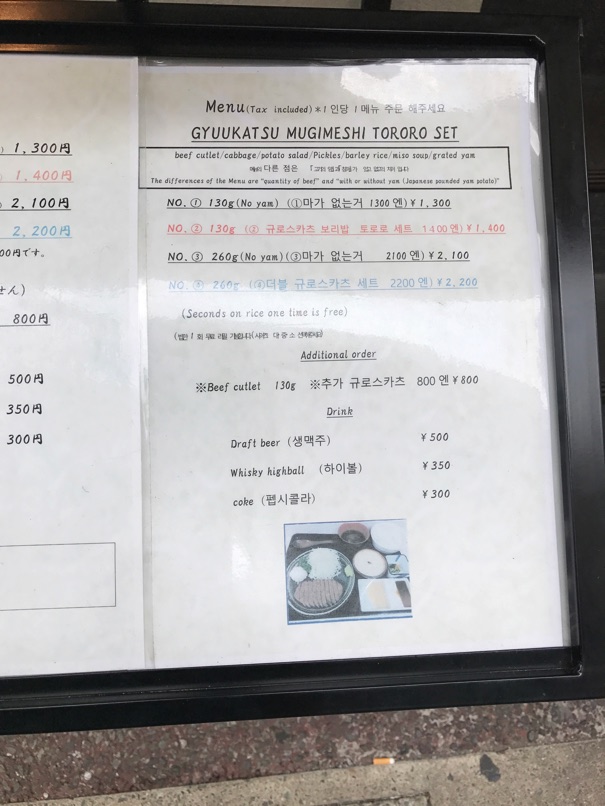 1,300円
1,400円
2,100円
2,200円
00円です。
せん)
800円
500円
350円
300円
Menu(Tax included)*1인당 1메뉴 주문 해주세요
GYUUKATSU MUGIMESHI TORORO SET
beef cutlet/cabbage/potato salad/Pickles/barley rice/miso soup/grated yam
다른 점은
The differences of the Menu are "quantity of beef" and "with or without yam (Japanese pounded yam potato)"
NO.① 130g(No yam)(①마가 없는거 1300엔)¥1,300
NO.② 130g (② 규로스카츠 보리밥 토로로 세트 1400엔)¥1,400
NO.③ 260g(No yam)(③마가 없는거 2100엔)¥2,100
260g (④더블 규로스카츠 세트 2200엔)¥2,200
(Seconds on rice one time is free)
Additional order
※Beef cutlet 130g ※추가 규로스카츠 800엔¥800
Drink
Draft beer (생맥주) ¥500
Whisky highball (하이볼) ¥350
coke (펩시콜라) ¥300